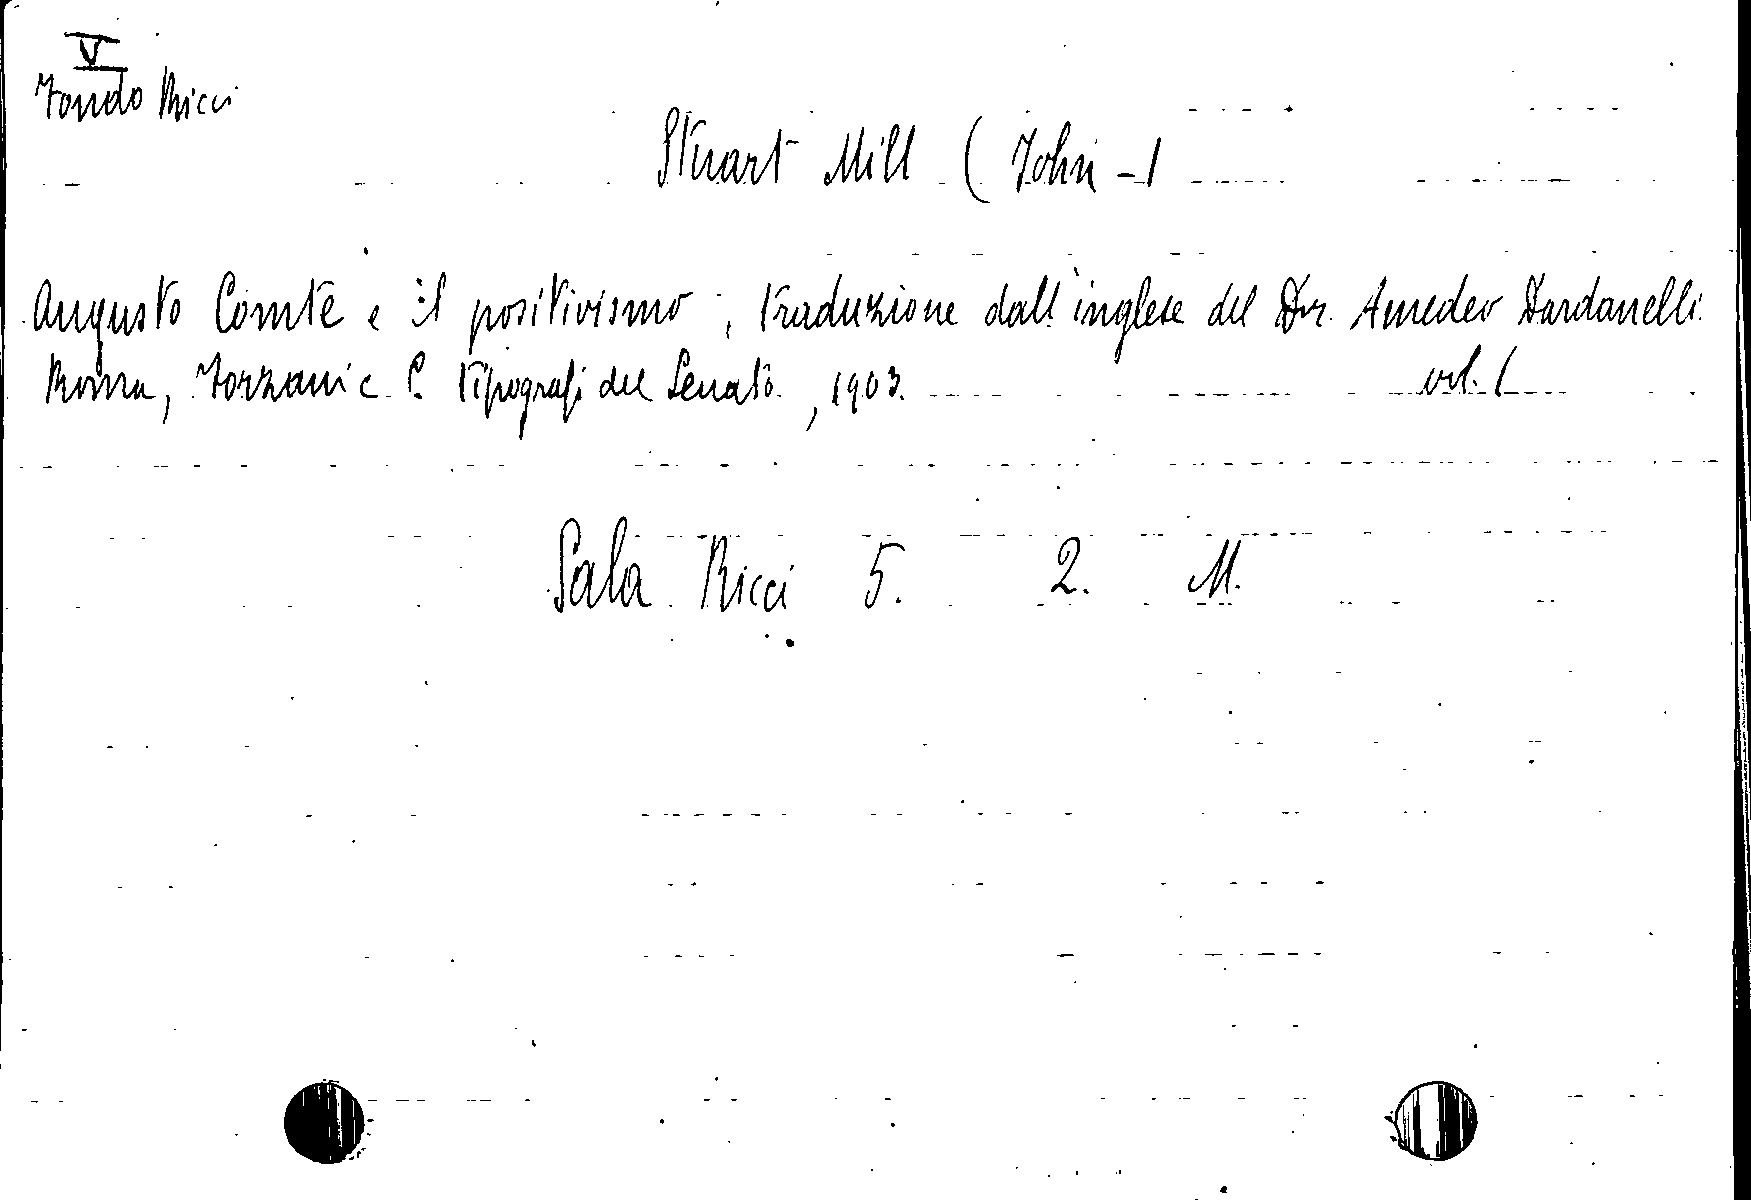 V
Fondo Ricci
Stuart Mill (John -)
Augusto Comte e il positivismo; traduzione dall'inglese del Dr. Amedeo Dardanelli.
Roma, Forzani e C. Tipografi del Senato, 1903. vol. 1
Sala Ricci 5. 2. M.